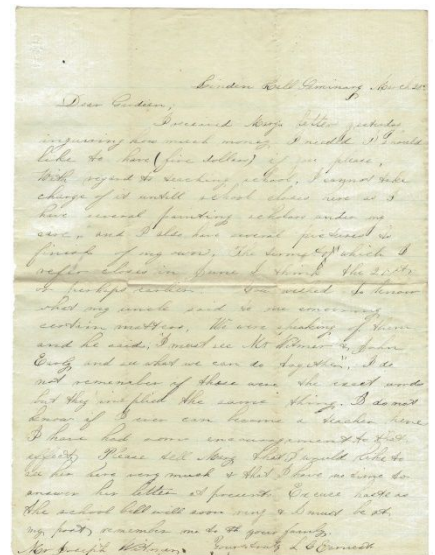 Linden Hall Seminary March 28th
Dear Guardian,
I received Mary's letter yesterday
inquiring how much money I needed I should
like to have (five dollars) if you please,
With regard to teaching school, I cannot take
charge of it untill school closes here as I
have several painting scholars under my
care, and I also have several pictures to
finish of my own. The term to which I
refer closes in June I think the 21st
or perhaps earlier. You wished to know
what my uncle said to me concerning
certain matters. We were speaking of them
and he said, I must see Mr Witmer & John
and see what we can do together". I do
not remember if those were the exact words
but they implied the same thing. I do not
know if I ever can become a teacher here
I have had some encouragement to that
effect. Please tell Mary that I would like to
see her here very much & that I have no time to
answer her letter at present. Excuse haste as
the school bell will soon ring & I must be at
my post, remember me to your family.
Mr Joseph Witmer. Yours truly L C